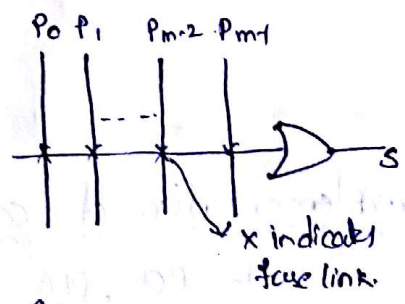 P0 P1 Pm-2 Pm-1
S
x indicates
fuse link.